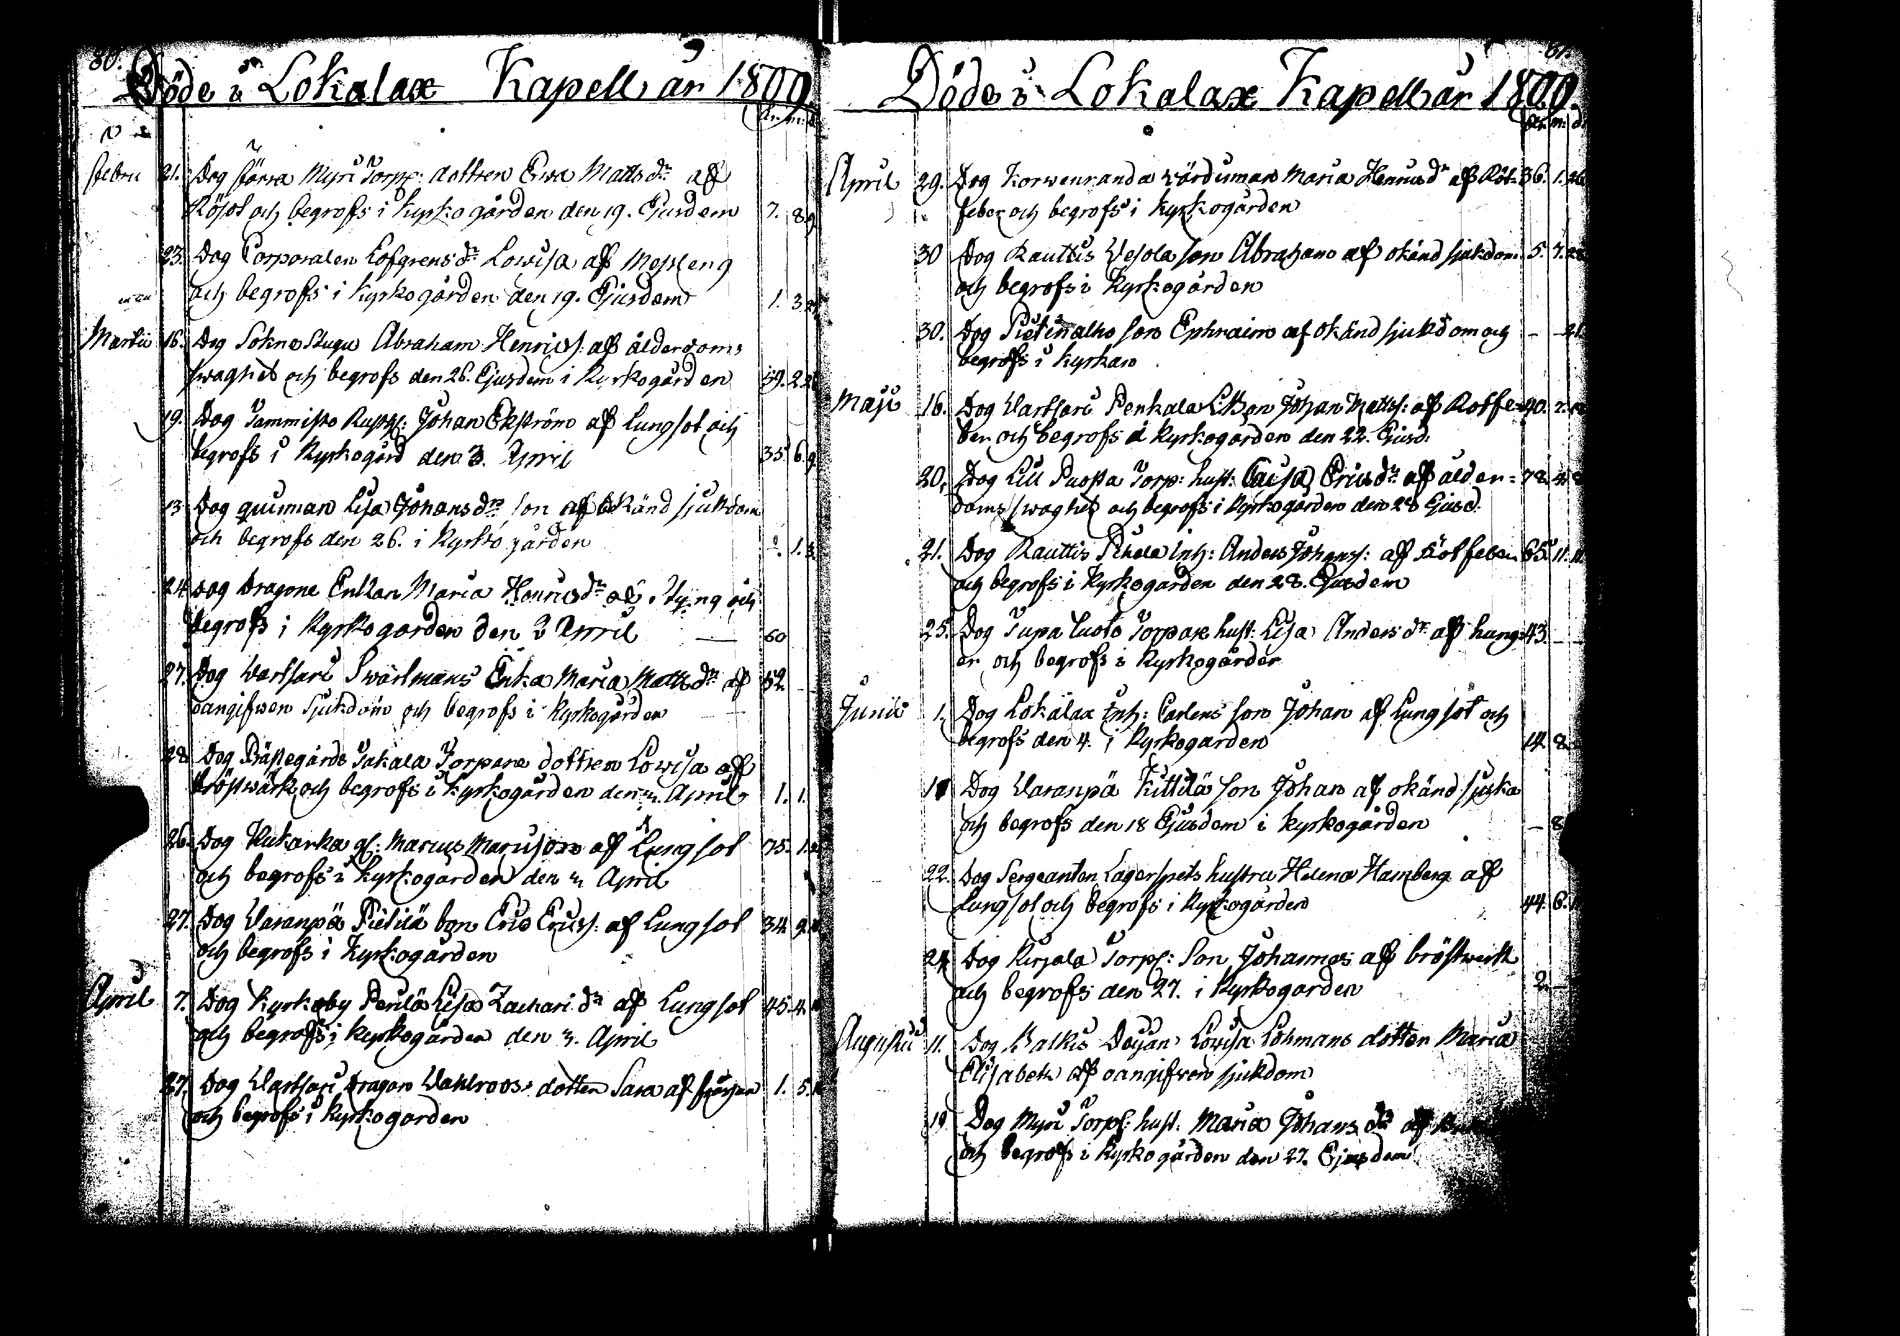 80.
Döde i Lokalax Kapell år 1809
år. m: d
Febru 21. Dog Torp: dottren Ewa Matts dr af
Rötsot och begrofs i Kyrkogården den 19. Ejusdem 7. 8. 9
23. Dog Corporalen Löfgrens dr Lowisa af Messleng
och begrofs i Kyrkogården den 19. Ejusdem 1. 3
Martii 16. Dog Abraham Henrics: af ålderdoms
swaghet och begrofs den 26. Ejusdem i Kyrkogården 59. 2.
19. Dog Tammisto Johan Ekström af Lungsot och
begrofs i Kyrkogård den 3. April 35. 6. 9
13 Dog quiman Lisa Johans dr son af okänd sjukdom
och begrofs den 26. i Kyrkogården 1. 3
24 Dog Dragone Enkan Maria Henrics dr af Styng och
begrofs i Kyrkogården den 3 April 60
27. Dog Wartsari Swartmans Enka Maria Matts dr af 52
oangifwen Sjukdom och begrofs i Kyrkogården
28 Dog Prästegårds Jakala Torpare dottren Lowisa af
bröstwärk och begrofs i Kyrkogården den April 1. 1.
26. Dog gl: Marcus Marcusson af Lungsot 75. 1.
och begrofs i Kyrkogården den April
27. Dog Varanpä Pietilä bon Eric Erics: af Lungsot 34. 9.
och begrofs i Kyrkogården
April 7. Dog Kyrkoby Penlä Lisa Zachari dr af Lungsot 45. 4.
och begrofs i Kyrkogården den April
27. Dog Wartsari Dragon Wahlroos dotten Sara af 1. 5.
och begrofs i Kyrkogården
81.
Döde i Lokalax Kapell år 1809.
år. m: d
April 29. Dog Korwenranda wördinnan Maria Henrics dr af Röt 36. 1. 26
feber och begrofs i Kyrkogården
30 Dog Rauttis Wesola son Abraham af okänd sjukdom 5. 7. 28
och begrofs i Kyrkogården
30. Dog Pietinalho son Ephraim af okänd sjukdom och - - 21
begrofs i Kyrkan
Maji 16. Dog Wartsari Penkala Johan Matts: af Rötfe 40. 2.
ber och begrofs i Kyrkogården den 22. Ejusd.
20. Dog Lill Puosta Torp: hust: Caisa Erics dr af ålder= 78. 4. 8
doms swaghet och begrofs i Kyrkogården den 28 Ejusd.
21. Dog Rauttis Inh: Anders Johans: af Rötfeber 65. 11. 11
och begrofs i Kyrkogården den 28. Ejusdem
25. Dog Torpare hust: Lisa Anders dr af hung 43. - -
er och begrofs i Kyrkogården
Junii 1. Dog Lokalax Inh: Carlens son Johan af Lungsot och
begrofs den 4. i Kyrkogården 14. 8.
11 Dog Varanpä Kittilä son Johan af okänd sjuka
och begrofs den 18 Ejusdem i Kyrkogården - 8
22. Dog Sergeanten Lagerspets hustru Helena Hamberg af
Lungsot och begrofs i Kyrkogården 44. 6.
24 Dog Kirjala Torp: Son Johannes af bröstwerk
och begrofs den 27. i Kyrkogården 2. -
Augusti 11. Dog Lowisa Löhmans dotter Maria
Elisabeth af oangifwen sjukdom
19 Dog Torp: hust: Maria Johans dr af
och begrofs i Kyrkogården den 27. Ejusdem